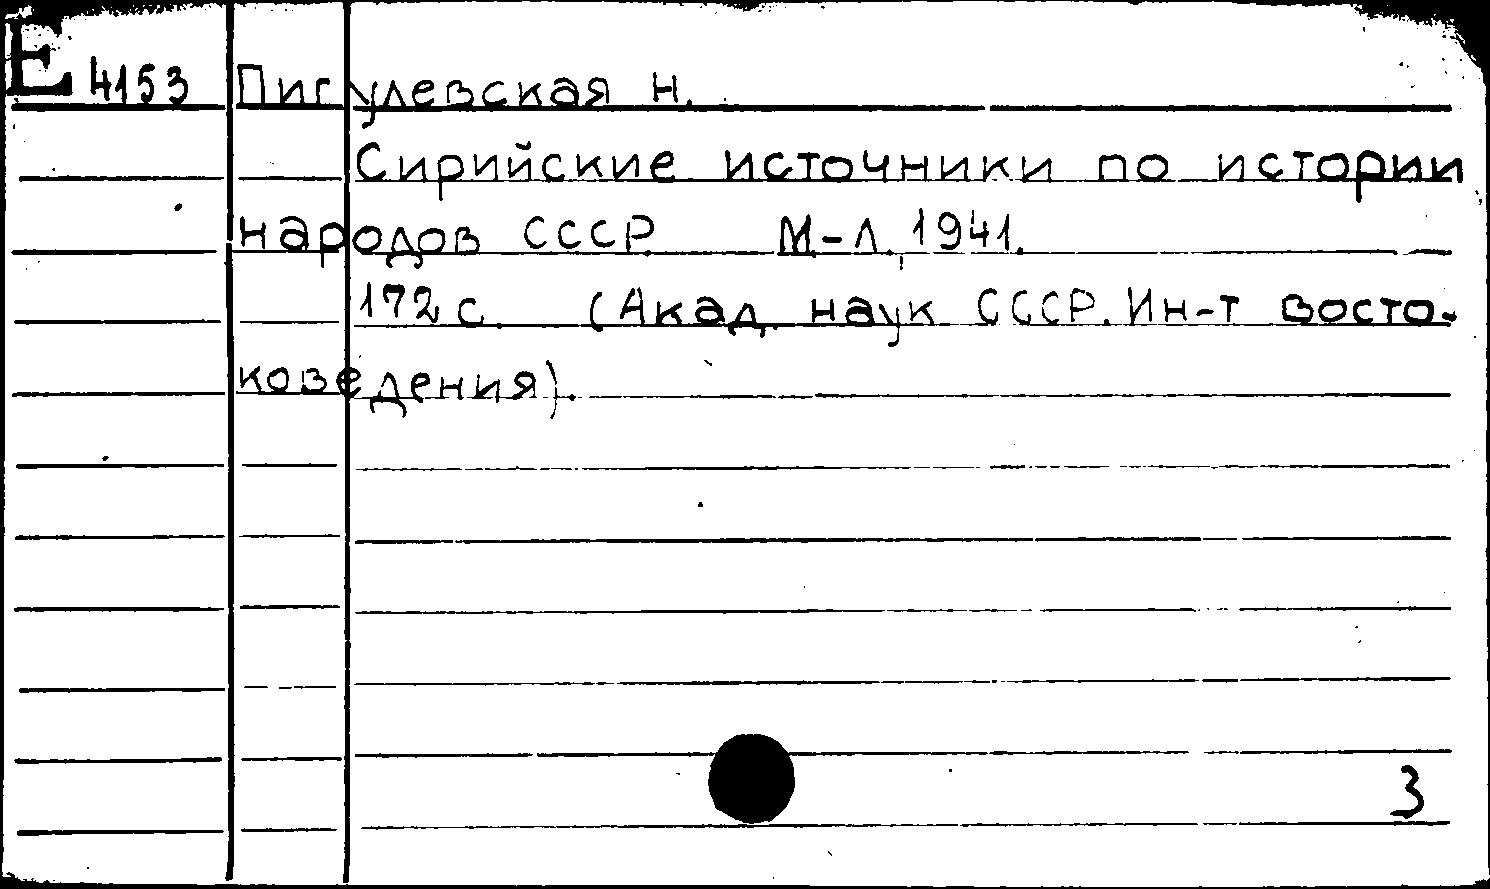 E 4153 Пигулевская Н.
Сирийские источники по истории
народов СССР М-Л, 1941.
172 с. (Акад. наук СССР. Ин-т восто-
коведения).
3